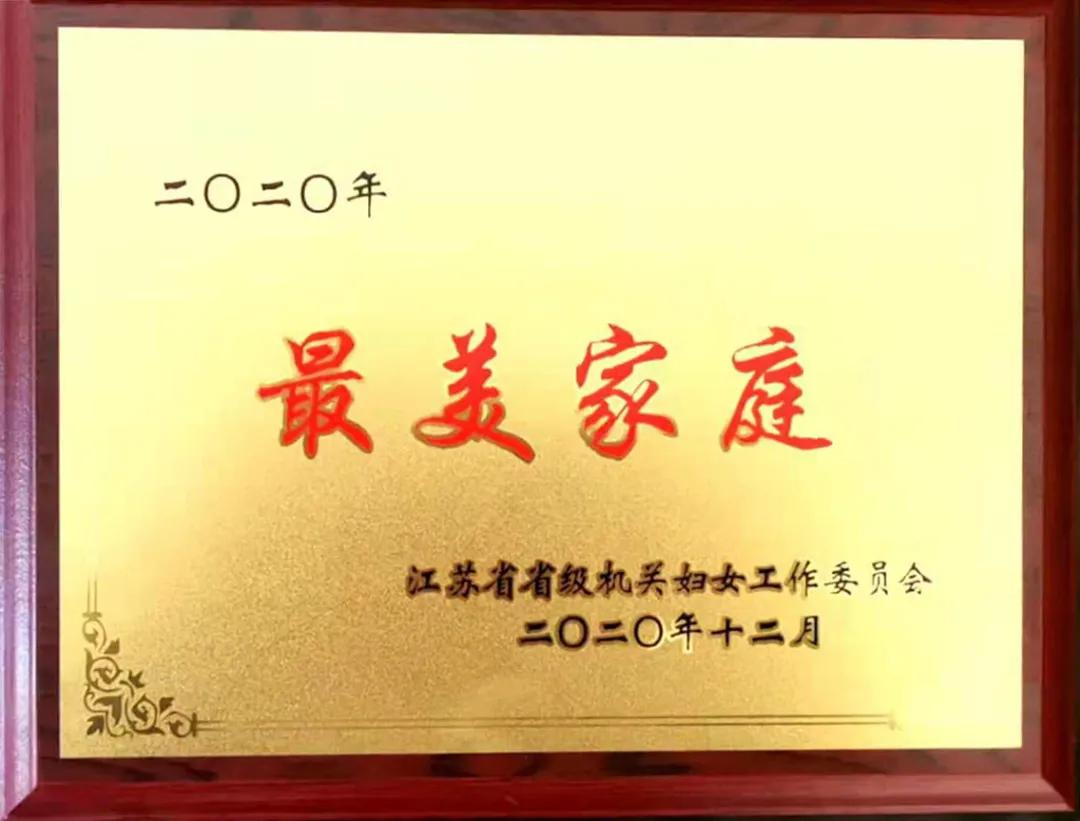 二〇二〇年
最美家庭
江苏省省级机关妇女工作委员会
二〇二〇年十二月